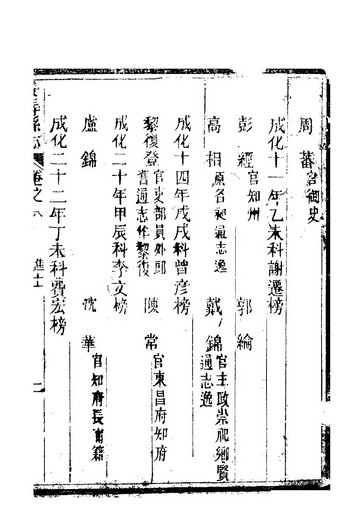 周蕃官御史
成化十一年乙未科謝遷榜
彭經官知州 郭綸
高相原名昶通志逸 戴錦官主政崇祀鄉賢通志逸
成化十四年戊戌科曾彥榜
黎復登官吏部員外郎舊通志作黎復 陳常官東昌府知府
成化二十年甲辰科李文榜
盧錦 沈華官知府長甯籍
成化二十二年丁未科費宏榜
縣志 卷之八 進士 二